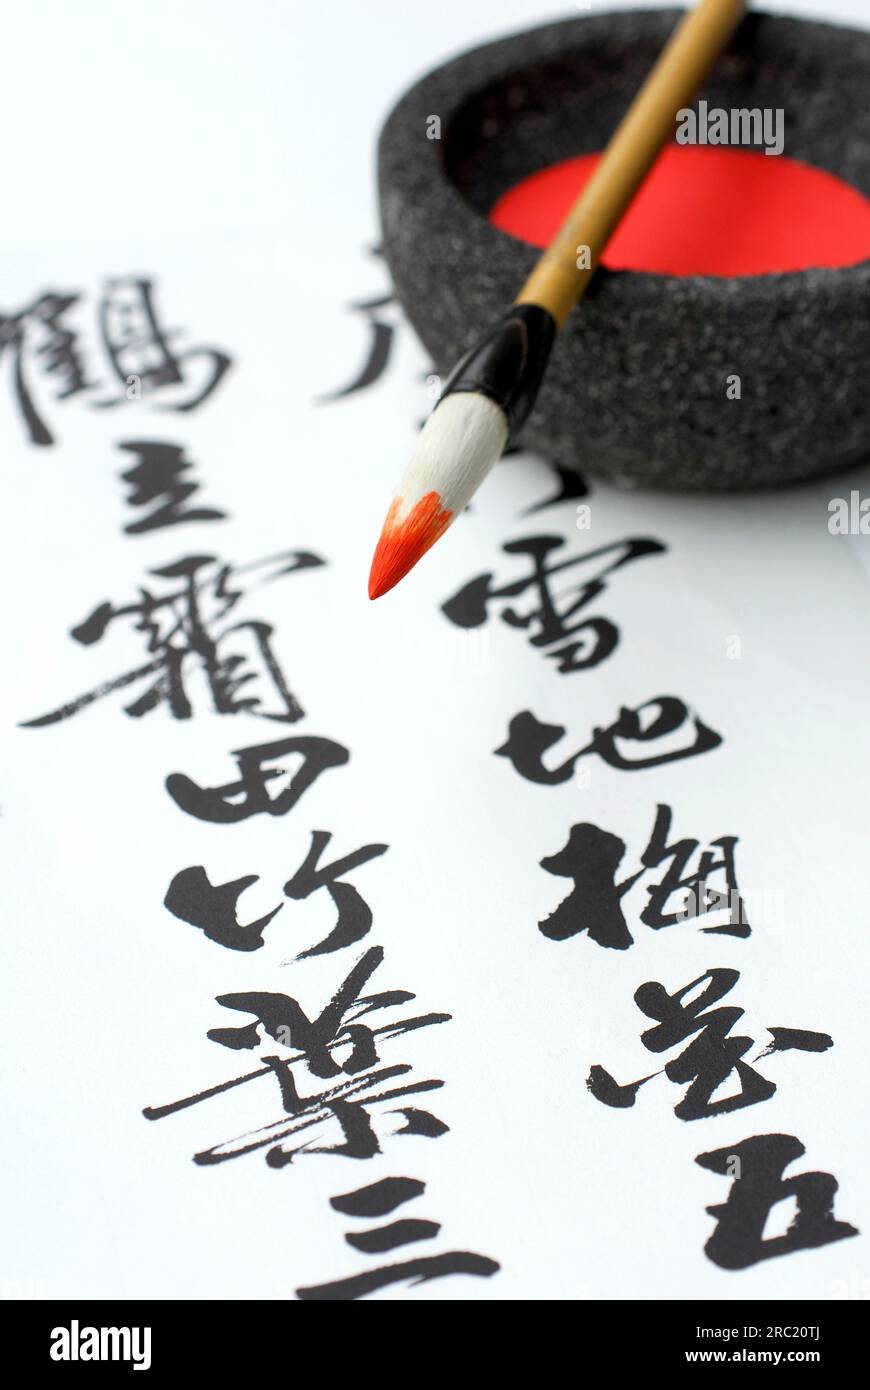 雪地梅花五
鶴立霜田竹葉三
alamy
alamy
Image ID: 2RC20TJ
www.alamy.com